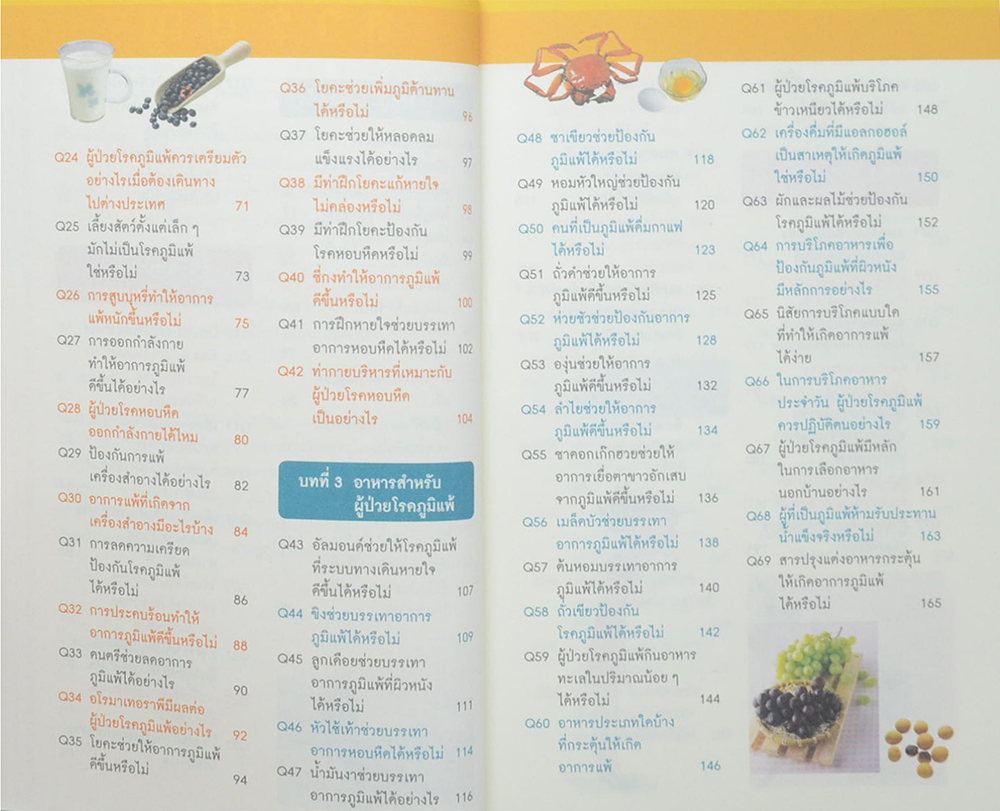 Q24 ผู้ป่วยโรคภูมิแพ้ควรเตรียมตัว
อย่างไรเมื่อต้องเดินทาง
ไปต่างประเทศ 71
Q25 เลี้ยงสัตว์ตั้งแต่เล็ก ๆ
มักไม่เป็นโรคภูมิแพ้
ใช่หรือไม่ 73
Q26 การสูบบุหรี่ทำให้อาการ
แพ้หนักขึ้นหรือไม่ 75
Q27 การออกกำลังกาย
ทำให้อาการภูมิแพ้
ดีขึ้นได้อย่างไร 77
Q28 ผู้ป่วยโรคหอบหืด
ออกกำลังกายได้ไหม 80
Q29 ป้องกันการแพ้
เครื่องสำอางได้อย่างไร 82
Q30 อาการแพ้ที่เกิดจาก
เครื่องสำอางมีอะไรบ้าง 84
Q31 การลดความเครียด
ป้องกันโรคภูมิแพ้
ได้หรือไม่ 86
Q32 การประคบร้อนทำให้
อาการภูมิแพ้ดีขึ้นหรือไม่ 88
Q33 ดนตรีช่วยลดอาการ
ภูมิแพ้ได้อย่างไร 90
Q34 อโรมาเทอราพีมีผลต่อ
ผู้ป่วยโรคภูมิแพ้อย่างไร 92
Q35 โยคะช่วยให้อาการภูมิแพ้
ดีขึ้นหรือไม่ 94
Q36 โยคะช่วยเพิ่มภูมิต้านทาน
ได้หรือไม่ 96
Q37 โยคะช่วยให้หลอดลม
แข็งแรงได้อย่างไร 97
Q38 มีท่าฝึกโยคะแก้หายใจ
ไม่คล่องหรือไม่ 98
Q39 มีท่าฝึกโยคะป้องกัน
โรคหอบหืดหรือไม่ 99
Q40 ชี่กงทำให้อาการภูมิแพ้
ดีขึ้นหรือไม่ 100
Q41 การฝึกหายใจช่วยบรรเทา
อาการหอบหืดได้หรือไม่ 102
Q42 ท่ากายบริหารที่เหมาะกับ
ผู้ป่วยโรคหอบหืด
เป็นอย่างไร 104
บทที่ 3 อาหารสำหรับ
ผู้ป่วยโรคภูมิแพ้
Q43 อัลมอนด์ช่วยให้โรคภูมิแพ้
ที่ระบบทางเดินหายใจ
ดีขึ้นได้หรือไม่ 107
Q44 ขิงช่วยบรรเทาอาการ
ภูมิแพ้ได้หรือไม่ 109
Q45 ลูกเดือยช่วยบรรเทา
อาการภูมิแพ้ที่ผิวหนัง
ได้หรือไม่ 111
Q46 หัวไช้เท้าช่วยบรรเทา
อาการหอบหืดได้หรือไม่ 114
Q47 น้ำมันงาช่วยบรรเทา
อาการภูมิแพ้ได้อย่างไร 116
Q48 ชาเขียวช่วยป้องกัน
ภูมิแพ้ได้หรือไม่ 118
Q49 หอมหัวใหญ่ช่วยป้องกัน
ภูมิแพ้ได้หรือไม่ 120
Q50 คนที่เป็นภูมิแพ้ดื่มกาแฟ
ได้หรือไม่ 123
Q51 ถั่วดำช่วยให้อาการ
ภูมิแพ้ดีขึ้นหรือไม่ 125
Q52 ห่วยซัวช่วยป้องกันอาการ
ภูมิแพ้ได้หรือไม่ 128
Q53 องุ่นช่วยให้อาการ
ภูมิแพ้ดีขึ้นหรือไม่ 132
Q54 ลำไยช่วยให้อาการ
ภูมิแพ้ดีขึ้นหรือไม่ 134
Q55 ชาดอกเก๊กฮวยช่วยให้
อาการเยื่อตาขาวอักเสบ
จากภูมิแพ้ดีขึ้นหรือไม่ 136
Q56 เมล็ดบัวช่วยบรรเทา
อาการภูมิแพ้ได้หรือไม่ 138
Q57 ต้นหอมบรรเทาอาการ
ภูมิแพ้ได้หรือไม่ 140
Q58 ถั่วเขียวป้องกัน
โรคภูมิแพ้ได้หรือไม่ 142
Q59 ผู้ป่วยโรคภูมิแพ้กินอาหาร
ทะเลในปริมาณน้อย ๆ
ได้หรือไม่ 144
Q60 อาหารประเภทใดบ้าง
ที่กระตุ้นให้เกิด
อาการแพ้ 146
Q61 ผู้ป่วยโรคภูมิแพ้บริโภค
ข้าวเหนียวได้หรือไม่ 148
Q62 เครื่องดื่มที่มีแอลกอฮอล์
เป็นสาเหตุให้เกิดภูมิแพ้
ใช่หรือไม่ 150
Q63 ผักและผลไม้ช่วยป้องกัน
โรคภูมิแพ้ได้หรือไม่ 152
Q64 การบริโภคอาหารเพื่อ
ป้องกันภูมิแพ้ที่ผิวหนัง
มีหลักการอย่างไร 155
Q65 นิสัยการบริโภคแบบใด
ที่ทำให้เกิดอาการแพ้
ได้ง่าย 157
Q66 ในการบริโภคอาหาร
ประจำวัน ผู้ป่วยโรคภูมิแพ้
ควรปฏิบัติตนอย่างไร 159
Q67 ผู้ป่วยโรคภูมิแพ้มีหลัก
ในการเลือกอาหาร
นอกบ้านอย่างไร 161
Q68 ผู้ที่เป็นภูมิแพ้ห้ามรับประทาน
น้ำแข็งจริงหรือไม่ 163
Q69 สารปรุงแต่งอาหารกระตุ้น
ให้เกิดอาการภูมิแพ้
ได้หรือไม่ 165